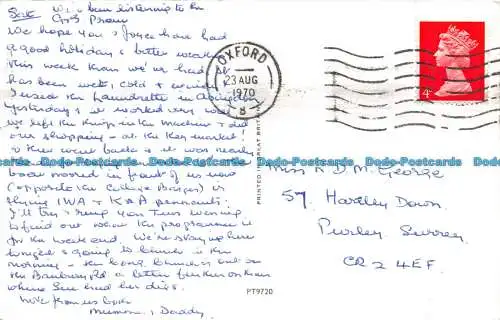 Sat. We've been listening to the
G & S Prom
We hope you & Joyce have had
a good holiday & better weather
this week than we've had. It
has been wet, cold &
I used the launderette in Abingdon
yesterday & it worked very well
we left the things in the machine & did
our shopping - at the Key market!
& then went back & it was nearly
boat moored in front of us now
(opposite the College Barges) is
flying IWA & K&A pennants.
I'll try & ring you Tues evening
to find out what the programme is
for the weekend. We're staying here
tonight & going to in the
morning - the long on
the Banbury Rd a better further on than
where Sue had her digs.
Love from us both
Mummy & Daddy
OXFORD
23 AUG
1970
B
4d
PRINTED IN GREAT BRITAIN
Miss A D M. George
57, Hartley Down,
Purley, Surrey
CR2 4EF.
PT9720
Dodo-Postcards Dodo-Postcards Dodo-Postcards Dodo-Postcards